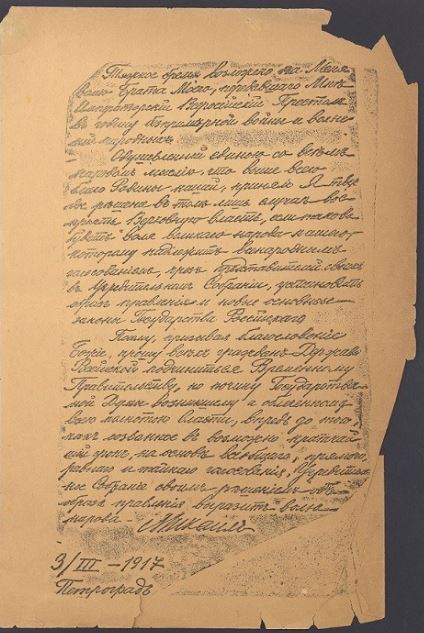 Тяжкое бремя возложено на Меня
волею Брата Моего, передавшаго Мнѣ
Императорскій Всероссійскій Престолъ
въ годину безпримѣрной войны и волне-
ній народныхъ.
Одушевленный единою со всѣмъ
народомъ мыслію, что выше всего
благо Родины нашей, принялъ Я твер-
дое рѣшеніе въ томъ лишь случаѣ вос-
пріять Верховную власть, если такова
будетъ воля великаго народа нашего,
которому надлежитъ всенароднымъ
голосованіемъ, чрезъ представителей своихъ
въ Учредительномъ Собраніи, установить
образъ правленія и новые основные
законы Государства Россійскаго
Посему, призывая благословеніе
Божіе, прошу всѣхъ гражданъ Державы
Россійской подчиниться Временному
Правительству, по почину Государствен-
ной Думы возникшему и облеченному
всею полнотою власти, впредь до того
какъ созванное въ возможно кратчай-
шій срокъ, на основѣ всеобщаго, прямого,
равнаго и тайнаго голосованія, Учредитель-
ное Собраніе своимъ рѣшеніемъ объ
образѣ правленія выразитъ волю
народа. Михаилъ
3/III – 1917
Петроградъ